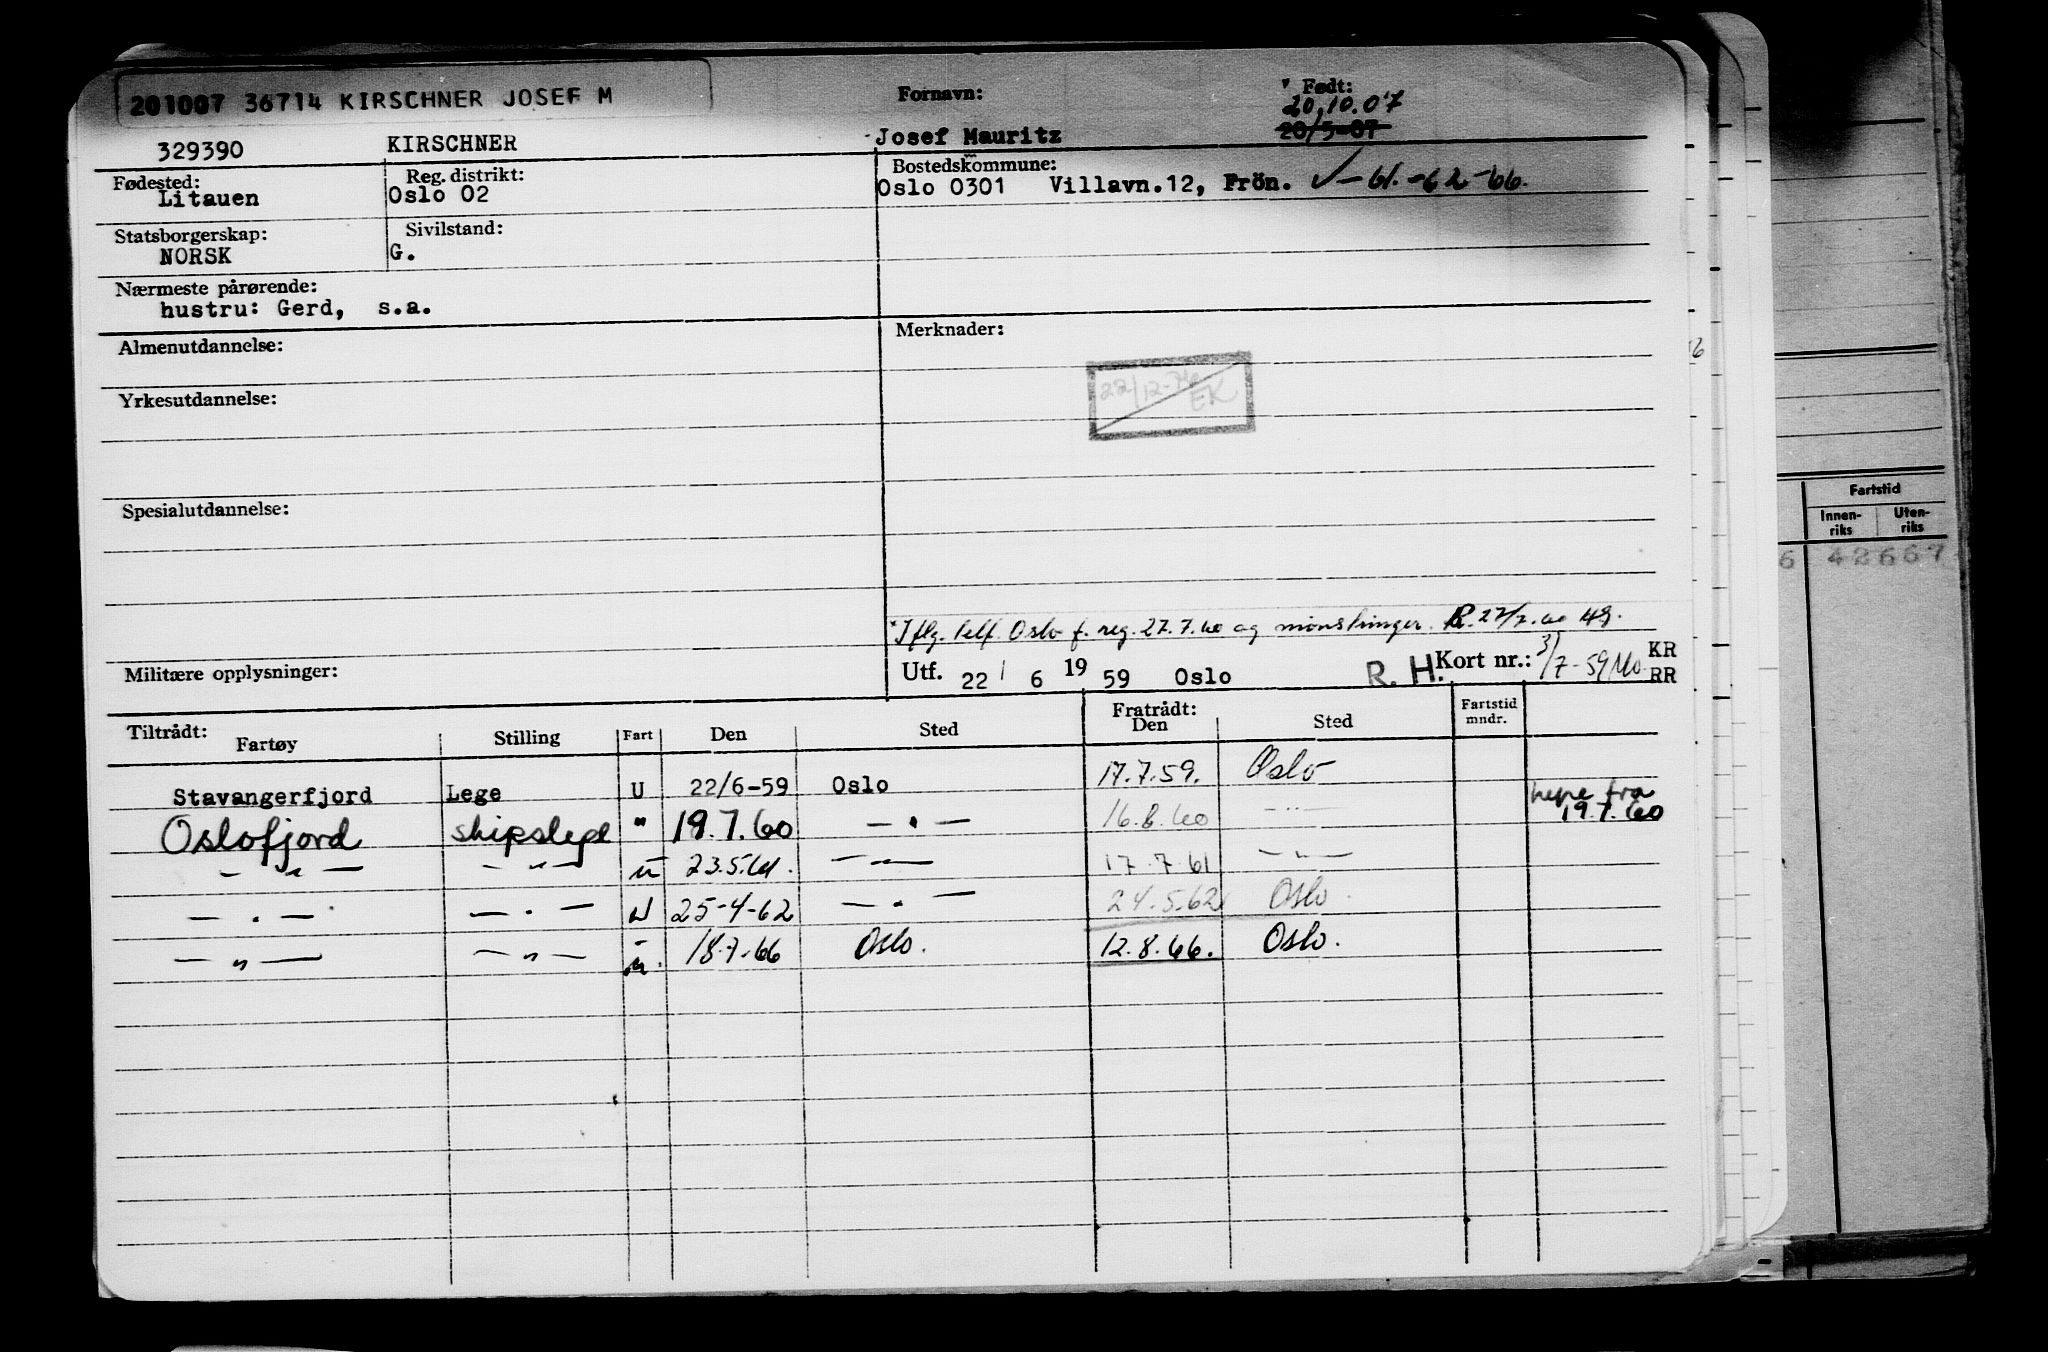 201007 36714 KIRSCHNER JOSEF M
Fornavn:
Født:
20.10.07
329390 KIRSCHNER Josef Mauritz 20/5-07
Fødested: Reg. distrikt: Bostedskommune:
Litauen Oslo 02 Oslo 0301 Villavn.12, Frön. ✓-61.-62-66.
Statsborgerskap: Sivilstand:
NORSK G.
Nærmeste pårørende:
hustru: Gerd, s.a.
Almenutdannelse: Merknader:
22/12-76 EK
Yrkesutdannelse:
Spesialutdannelse:
Oslo f. reg. 27.7.60 og mønstringer.
Militære opplysninger: Utf. 22/6 1959 Oslo R. H. Kort nr.: 3/7-59 KR
RR
Tiltrådt: Fratrådt: Fartstid mndr.
Fartøy Stilling Fart Den Sted Den Sted
Stavangerfjord Lege U 22/6-59 Oslo 17.7.59. Oslo
Oslofjord skipslege " 19.7.60 — " — 16.8.60 — " — hyre fra 19.7.60
— " — — " — u 23.5.61. — " — 17.7.61 — " —
— " — — " — U 25-4-62 — " — 24.5.62 Oslo.
— " — — " — u. 18.7-66 Oslo. 12.8.66. Oslo.
Fartstid
Innen-riks Uten-riks
6 42667